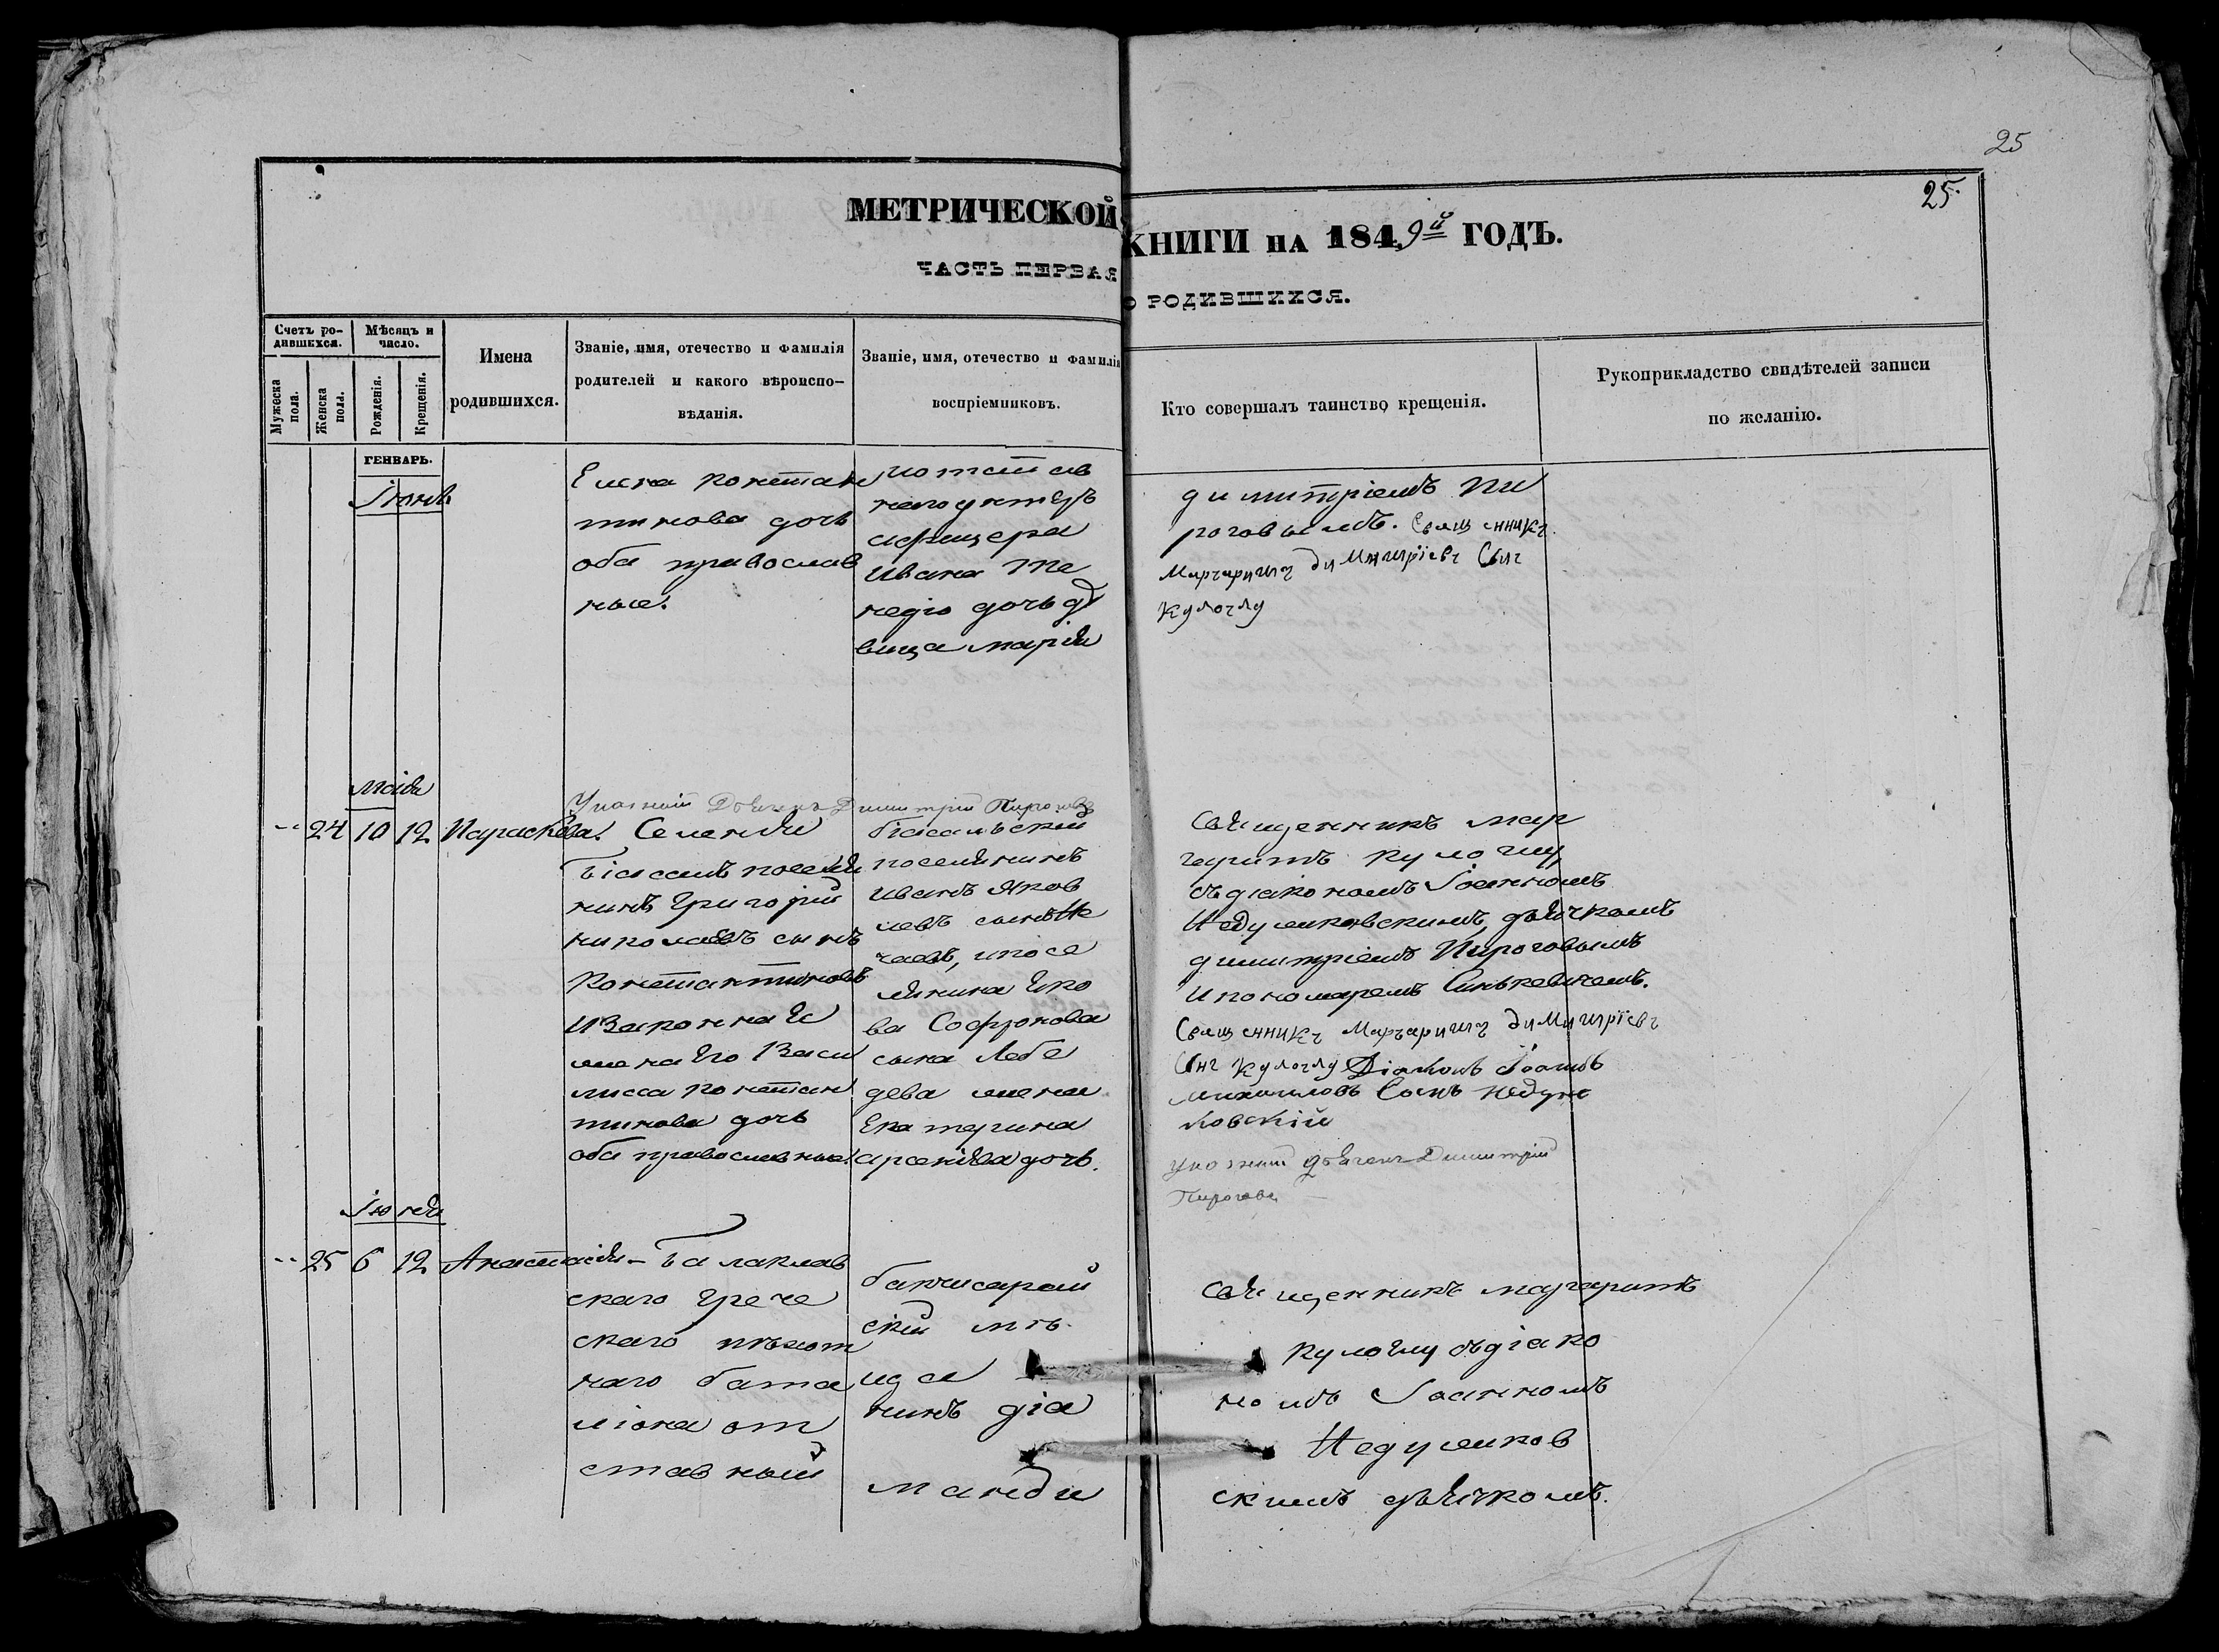 25
25.
МЕТРИЧЕСКОЙ КНИГИ НА 1849й ГОДЪ.
ЧАСТЬ ПЕРВАЯ О РОДИВШИХСЯ.
Счетъ ро-
дившихся.
Мужеска
пола.
Женска
пол.
Мѣсяцъ и
число.
Рожденія.
Крещенія.
Имена
родившихся.
Званіе, имя, отечество и фамилія
родителей и какого вѣроиспо-
вѣданія.
Званіе, имя, отечество и фамилія
воспріемниковъ.
Кто совершалъ таинство крещенія.
Рукоприкладство свидѣтелей записи
по желанію.
ГЕНВАРЬ.
Елена констан
тинова дочь
оба православ
ные.
наго унтеръ
офицера
Ивана
дочь дѣ
вица марія
димитріемъ Пи
роговымъ. Священникъ
Маргаритъ димитріевъ Сынъ
Кулочлу
маія
24 10 12 Параскева.
Указной Дьячекъ Димитрій Пироговъ
Селенія
Біасалъ поселя
нинъ Григорій
николаевъ сынъ
Константиновъ
и законная
жена его Васи
лисса констан
тинова дочь
оба православные.
біасальскій
поселянинъ
иванъ яков
левъ сынъ
и посе
лянина
ва Софронова
сына Лебе
дева жена
Екатерина
арсеніева дочь.
Священникъ мар
гаритъ кулочлу
съ діакономъ Іоанномъ
Недумковскимъ, дьячкомъ
димитріемъ Пироговымъ
и пономаремъ Синькевичемъ.
Священникъ Маргаритъ димитріевъ
Сынъ Кулочлу Діаконъ Іоаннъ
михаиловъ Сынъ Недум
ковскій
указной дьячекъ Димитрій
Пироговъ
Іюня
25 6 12 Анастасія
Балаклав
скаго Грече
скаго пѣхот
наго бата
ліона от
ставный
бакчисарай
скій мѣ
ща
нинъ діа
манди
Священникъ маргаритъ
кулочлу съ діако
номъ Іоанномъ
Недумков
скимъ дьячкомъ.